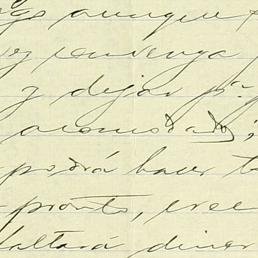 aunque
vez convenga
y dejar pª
acomodado;
podrá hacer
pronto, cree
faltará diner